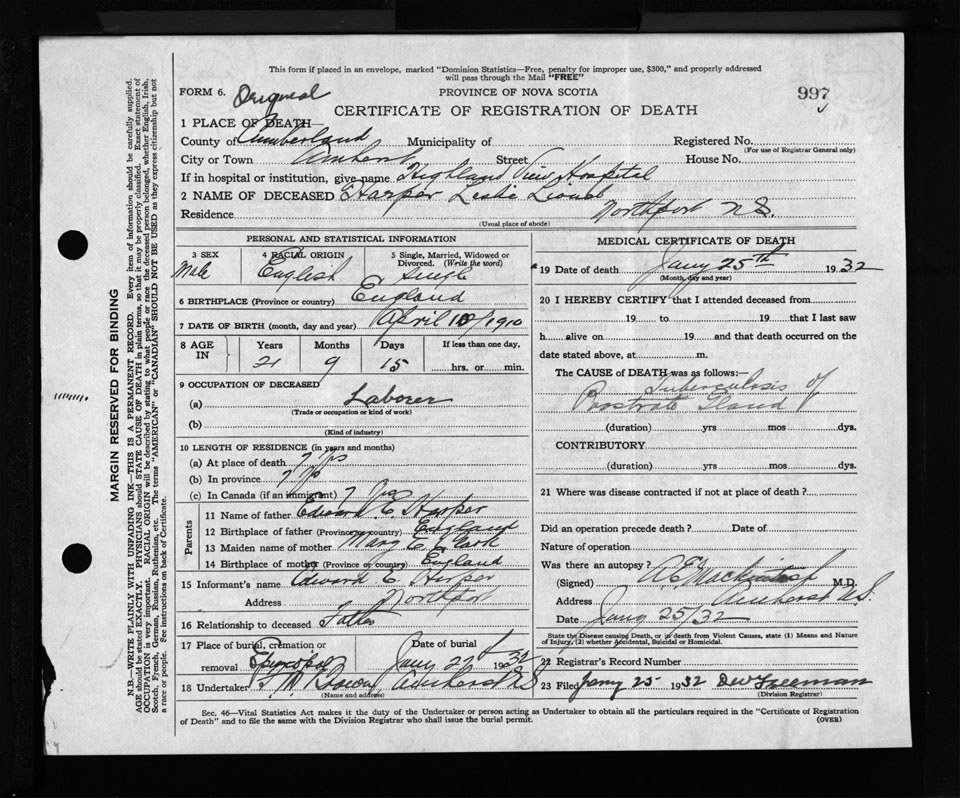 This form if placed in an envelope, marked "Dominion Statistics—Free, penalty for improper use, $300," and properly addressed
will pass through the Mail "FREE"
FORM 6. Original PROVINCE OF NOVA SCOTIA 997
CERTIFICATE OF REGISTRATION OF DEATH
1 PLACE OF DEATH—
County of Cumberland Municipality of Registered No.
(For use of Registrar General only)
City or Town Amherst Street House No.
If in hospital or institution, give name Highland View Hospital
2 NAME OF DECEASED Harper Leslie Lionel
Residence Northport N.S.
(Usual place of abode)
PERSONAL AND STATISTICAL INFORMATION
3 SEX 4 RACIAL ORIGIN 5 Single, Married, Widowed or Divorced. (Write the word)
Male English Single
6 BIRTHPLACE (Province or country) England
7 DATE OF BIRTH (month, day and year) April 10/1910
8 AGE IN Years Months Days If less than one day,
21 9 15 hrs. or min.
9 OCCUPATION OF DECEASED
(a) Laborer
(Trade or occupation or kind of work)
(b)
(Kind of industry)
10 LENGTH OF RESIDENCE (in years and months)
(a) At place of death 7 yrs
(b) In province 7 yrs
(c) In Canada (if an immigrant) 7 yrs
Parents
11 Name of father Edward E. Harper
12 Birthplace of father (Province or country) England
13 Maiden name of mother Mary E. Clark
14 Birthplace of mother (Province or country) England
15 Informant's name Edward E. Harper
Address Northport
16 Relationship to deceased Father
17 Place of burial, cremation or removal Episcopal Date of burial Jany 27 1932
18 Undertaker F. M. Brown Amherst N.S.
(Name and address)
MEDICAL CERTIFICATE OF DEATH
19 Date of death Jany 25th 1932
(Month, day and year)
20 I HEREBY CERTIFY that I attended deceased from
19 to 19 that I last saw
h alive on 19 and that death occurred on the
date stated above, at m.
The CAUSE of DEATH was as follows:—
Tuberculosis of
Prostrate Gland
(duration) yrs mos dys.
CONTRIBUTORY
(duration) yrs mos dys.
21 Where was disease contracted if not at place of death?
Did an operation precede death? Date of
Nature of operation
Was there an autopsy?
(Signed) A E Mackintosh M.D.
Address Amherst N.S.
Date Jany 25/32
State the Disease causing Death, or in death from Violent Causes, state (1) Means and Nature
of Injury, (2) whether Accidental, Suicidal or Homicidal.
22 Registrar's Record Number
23 Filed Jany 25 1932 Freeman
(Division Registrar)
Sec. 46—Vital Statistics Act makes it the duty of the Undertaker or person acting as Undertaker to obtain all the particulars required in the "Certificate of Registration
of Death" and to file the same with the Division Registrar who shall issue the burial permit. (OVER)
MARGIN RESERVED FOR BINDING
N.B.—WRITE PLAINLY WITH UNFADING INK—THIS IS A PERMANENT RECORD. Every item of information should be carefully supplied.
AGE should be stated EXACTLY. PHYSICIANS should STATE CAUSE OF DEATH in plain terms, so that it may be properly classified. Exact statement of
OCCUPATION is very important. RACIAL ORIGIN will be described by stating to what people or race the deceased person belonged, whether English, Irish,
Scotch, French, German, Russian, Ruthenian, etc. The terms "AMERICAN" or "CANADIAN" SHOULD NOT BE USED as they express citizenship but not
a race or people. See instructions on back of Certificate.